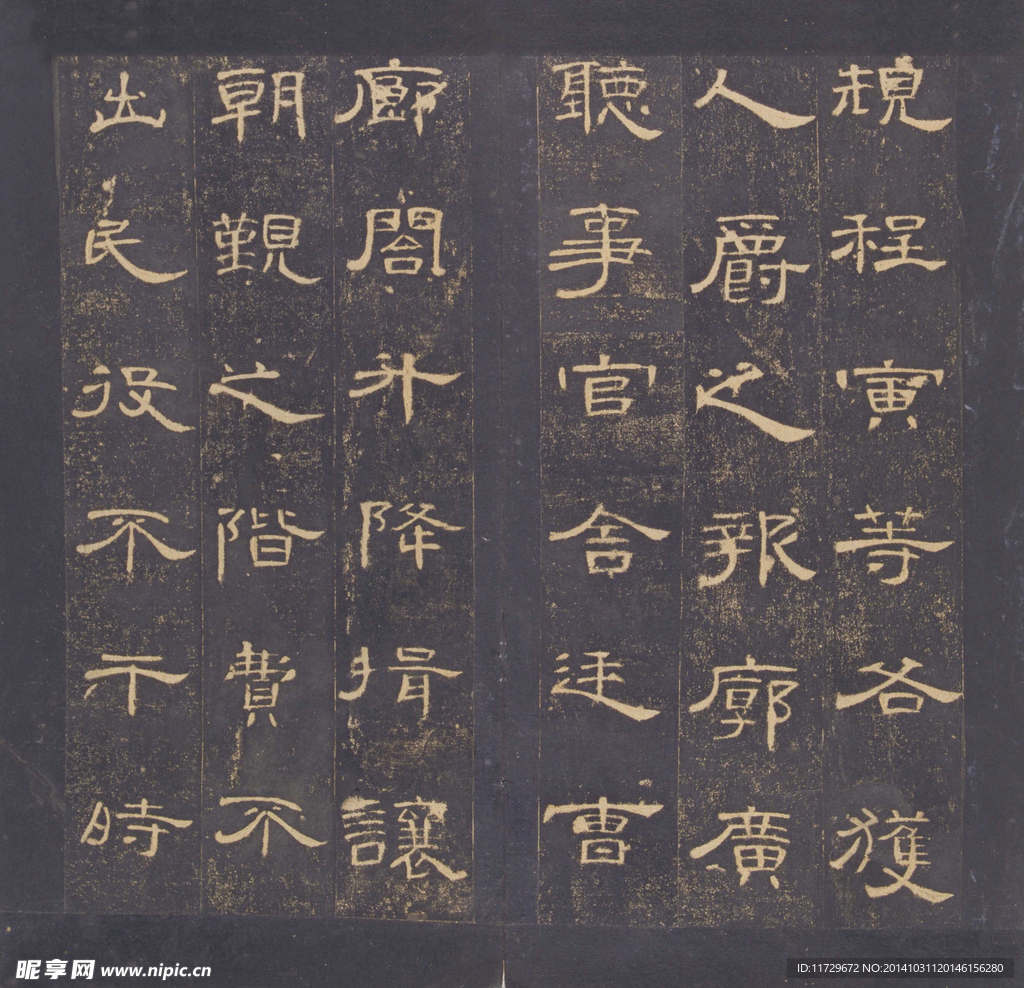 規程寅等各獲
人爵之報廓廣
聽事官舍廷曹
廊閣升降揖讓
朝覲之階費不
出民役不干時
昵享网 www.nipic.cn
ID:11729672 NO:20141031120146156280